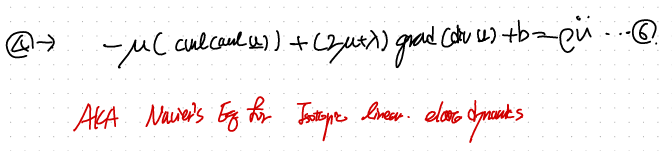 ④→ -μ( curl(curl u)) + (2μ+λ) grad(div u) + b = ρü ...⑥
AKA Navier's Eq for Isotropic linear. elastodynamics